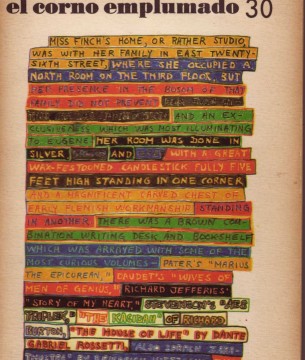 el corno emplumado 30
MISS FINCH'S HOME, OR RATHER STUDIO,
WAS WITH HER FAMILY IN EAST TWENTY-
SIXTH STREET, WHERE SHE OCCUPIED A
NORTH ROOM ON THE THIRD FLOOR, BUT
HER PRESENCE IN THE BOSOM OF THAT
FAMILY DID NOT PREVENT
AND AN EX-
CLUSIVENESS WHICH WAS MOST ILLUMINATING
TO EUGENE. HER ROOM WAS DONE IN
SILVER AND WITH A GREAT
WAX-FESTOONED CANDLESTICK FULLY FIVE
FEET HIGH STANDING IN ONE CORNER
AND A MAGNIFICENT CARVED CHEST OF
EARLY FLEMISH WORKMANSHIP STANDING
IN ANOTHER. THERE WAS A BROWN COM-
BINATION WRITING DESK AND BOOK-SHELF
WHICH WAS ARRAYED WITH SOME OF THE
MOST CURIOUS VOLUMES - PATER'S "MARIUS
THE EPICUREAN," DAUDET'S "WIVES OF
MEN OF GENIUS," RICHARD JEFFERIES'
"STORY OF MY HEART," STEVENSON'S "AES
TRIPLEX," "THE KASIDAH" OF RICHARD
BURTON, "THE HOUSE OF LIFE" BY DANTE
GABRIEL ROSSETTI,